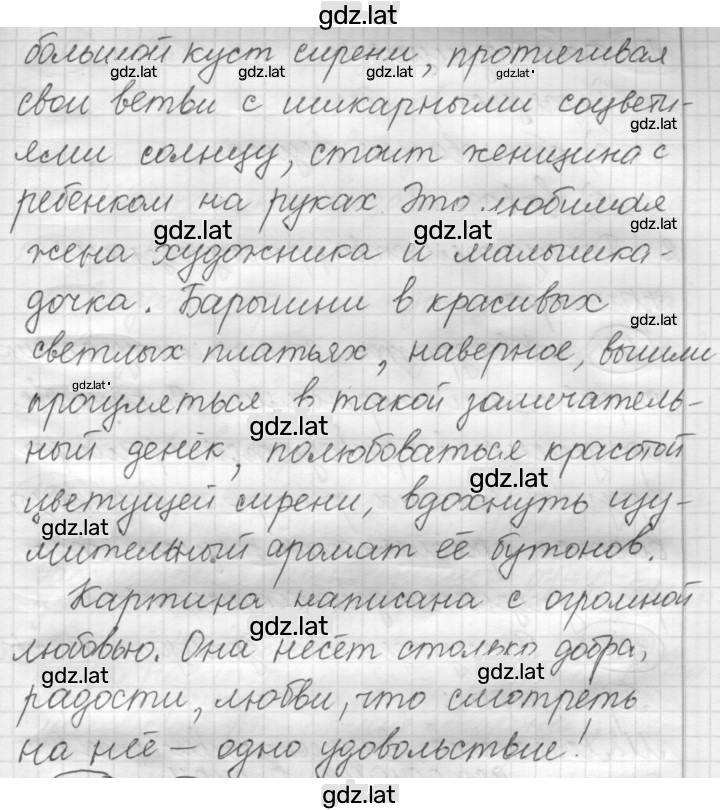 gdz.lat
большой куст сирени, протягивая
gdz.lat gdz.lat gdz.lat gdz.lat
свои ветви с шикарными соцвети-
gdz.lat
ями солнцу, стоит женщина с
ребёнком на руках Это любимая
gdz.lat gdz.lat
жена художника и малышка-
дочка. Барышни в красивых
gdz.lat
светлых платьях, наверное, вышли
gdz.lat
прогуляться в такой замечатель-
gdz.lat
ный денёк, полюбоваться красотой
gdz.lat
цветущей сирени, вдохнуть изу-
gdz.lat
мительный аромат её бутонов.
Картина написана с огромной
gdz.lat
любовью. Она несёт столько добра,
gdz.lat gdz.lat
радости, любви, что смотреть
на неё – одно удовольствие!
gdz.lat